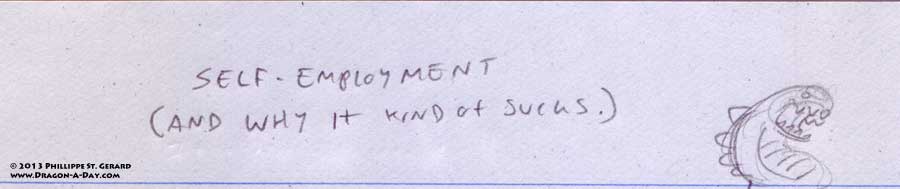 SELF-EMPLOYMENT
(AND WHY IT KIND OF SUCKS.)
© 2013 PHILLIPPE ST. GERARD
WWW.DRAGON-A-DAY.COM